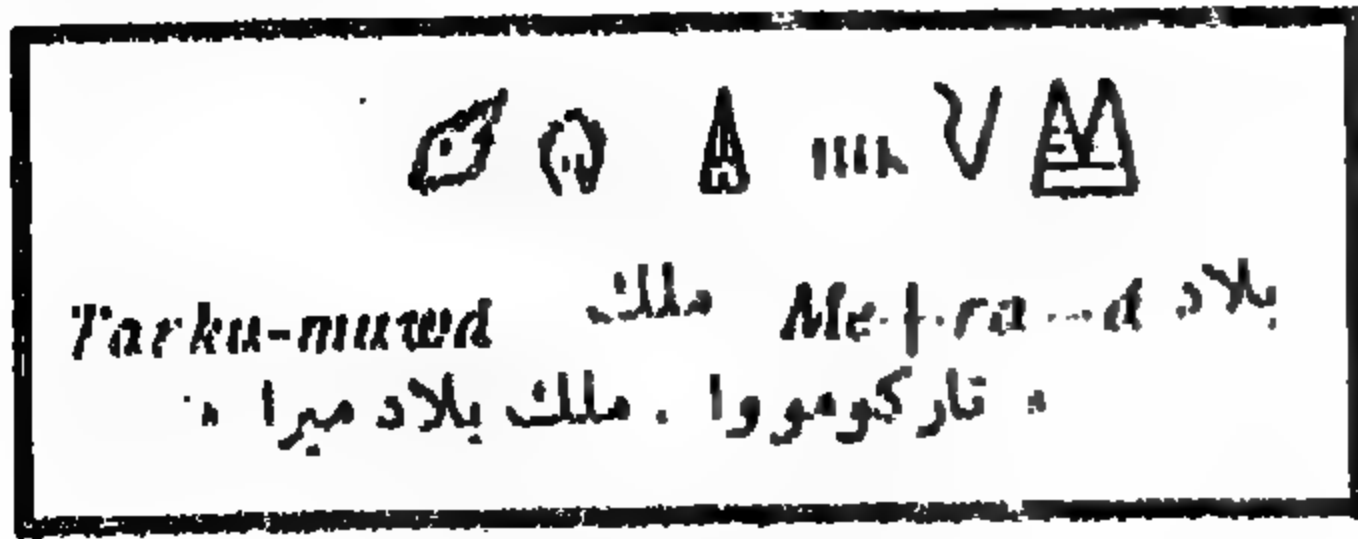 Tarku-muwa ملك Me+ra-a بلاد
« تاركوموا . ملك بلاد ميرا »